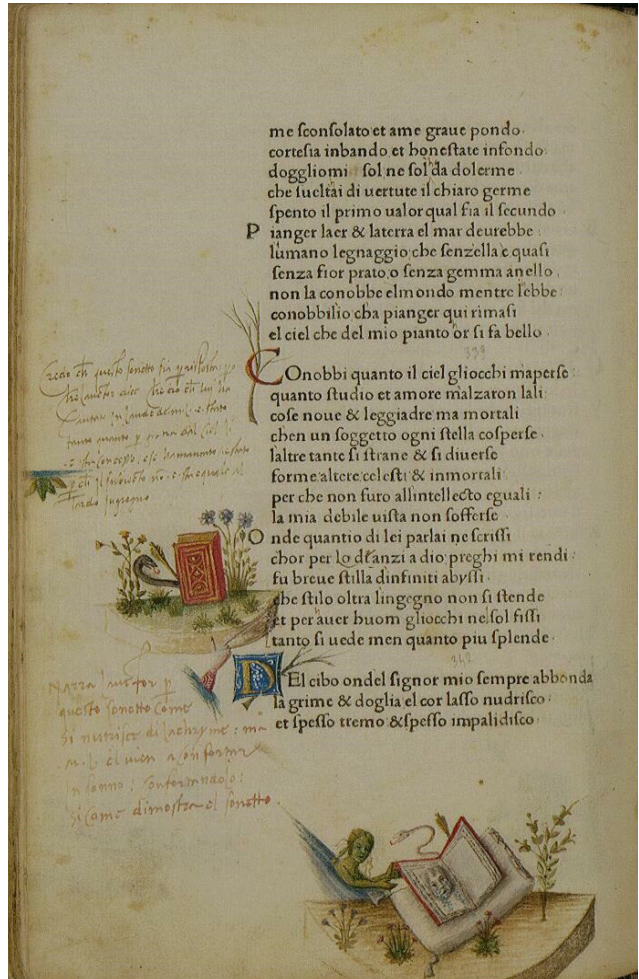 me sconsolato et ame graue pondo.
cortesia inbando et honestate infondo:
doggliomi sol ne sol da dolerme
che sueltai di uertute il chiaro germe
spento il primo ualor qual fia il secundo.
P ianger laer & laterra el mar deurebbe:
lumano legnaggio che senzella e quasi
senza fior prato o senza gemma anello.
non la conobbe elmondo mentre lebbe:
conobbilio cha pianger qui rimasi
el ciel che del mio pianto or si fa bello.
339
COnobbi quanto il ciel gliocchi maperse:
quanto studio et amore malzaron lali:
cose noue & leggiadre ma mortali
chen un soggetto ogni stella cosperse.
laltre tante si strane & si diuerse
forme altere celesti & inmortali
per che non furo allintellecto eguali:
la mia debile uista non sofferse.
O nde quantio di lei parlai ne scrissi
chor per lo danzi a dio preghi mi rendi:
fu breue stilla dinfiniti abyssi.
che stilo oltra lingegno non si stende
et per auer huom gliocchi nel sol fissi
tanto si uede men quanto piu splende.
342
DEl cibo ondel signor mio sempre abbonda
lagrime & doglia el cor lasso nudrisco.
et spesso tremo & spesso impalidisco.
Credo questo sonetto
ingegno
Narra lautor
questo sonetto come
si nutrisce di lachryme: ma
.M.L. el vien a confortar
In sonno: confortandolo:
si come dimostra el sonetto.